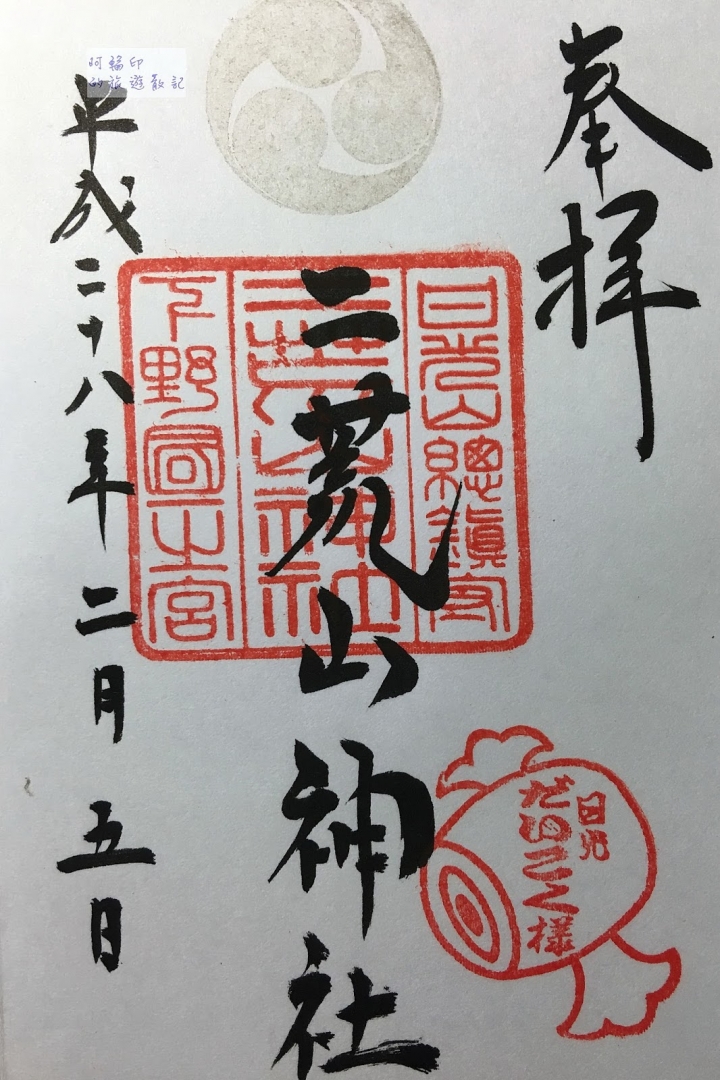 奉拝
日光山総鎮守
二荒山神社
二荒山神社
下野國一之宮
日光
だいこく様
平成二十八年二月五日
阿福印
的旅遊散記